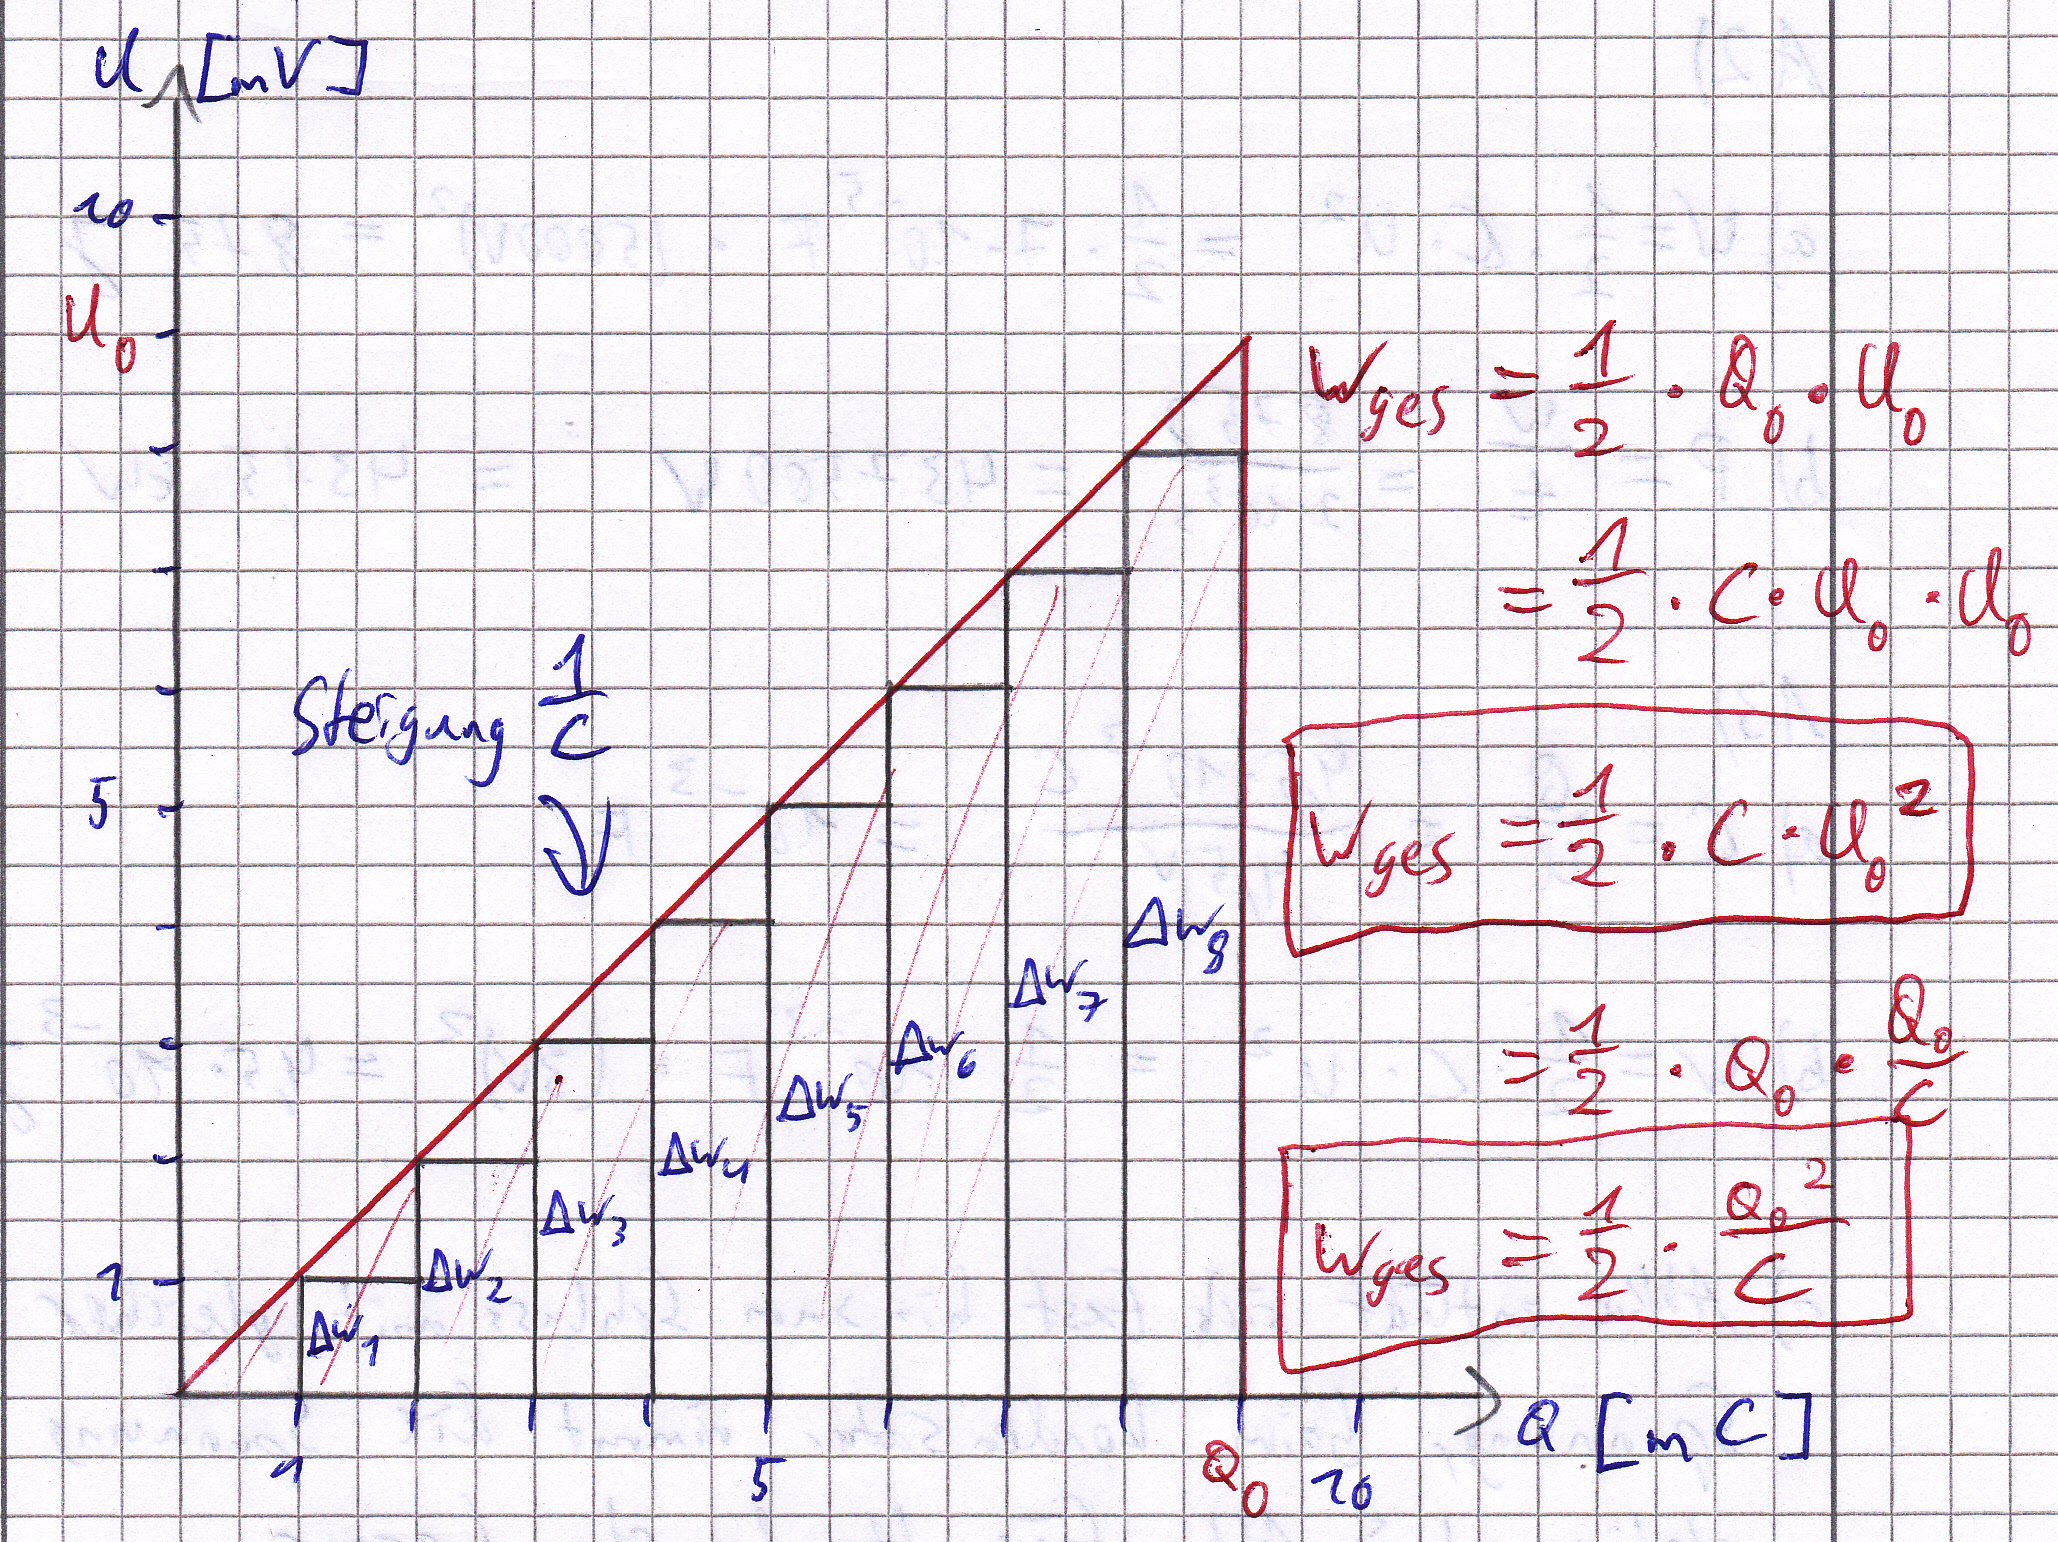 U [mV]
10
U₀
5
1
Steigung 1/C
ΔW₁
ΔW₂
ΔW₃
ΔW₄
ΔW₅
ΔW₆
ΔW₇
ΔW₈
1
5
Q₀
10
Q [mC]
Wges = 1/2 · Q₀ · U₀
= 1/2 · C · U₀ · U₀
Wges = 1/2 · C · U₀²
= 1/2 · Q₀ · Q₀/C
Wges = 1/2 · Q₀²/C